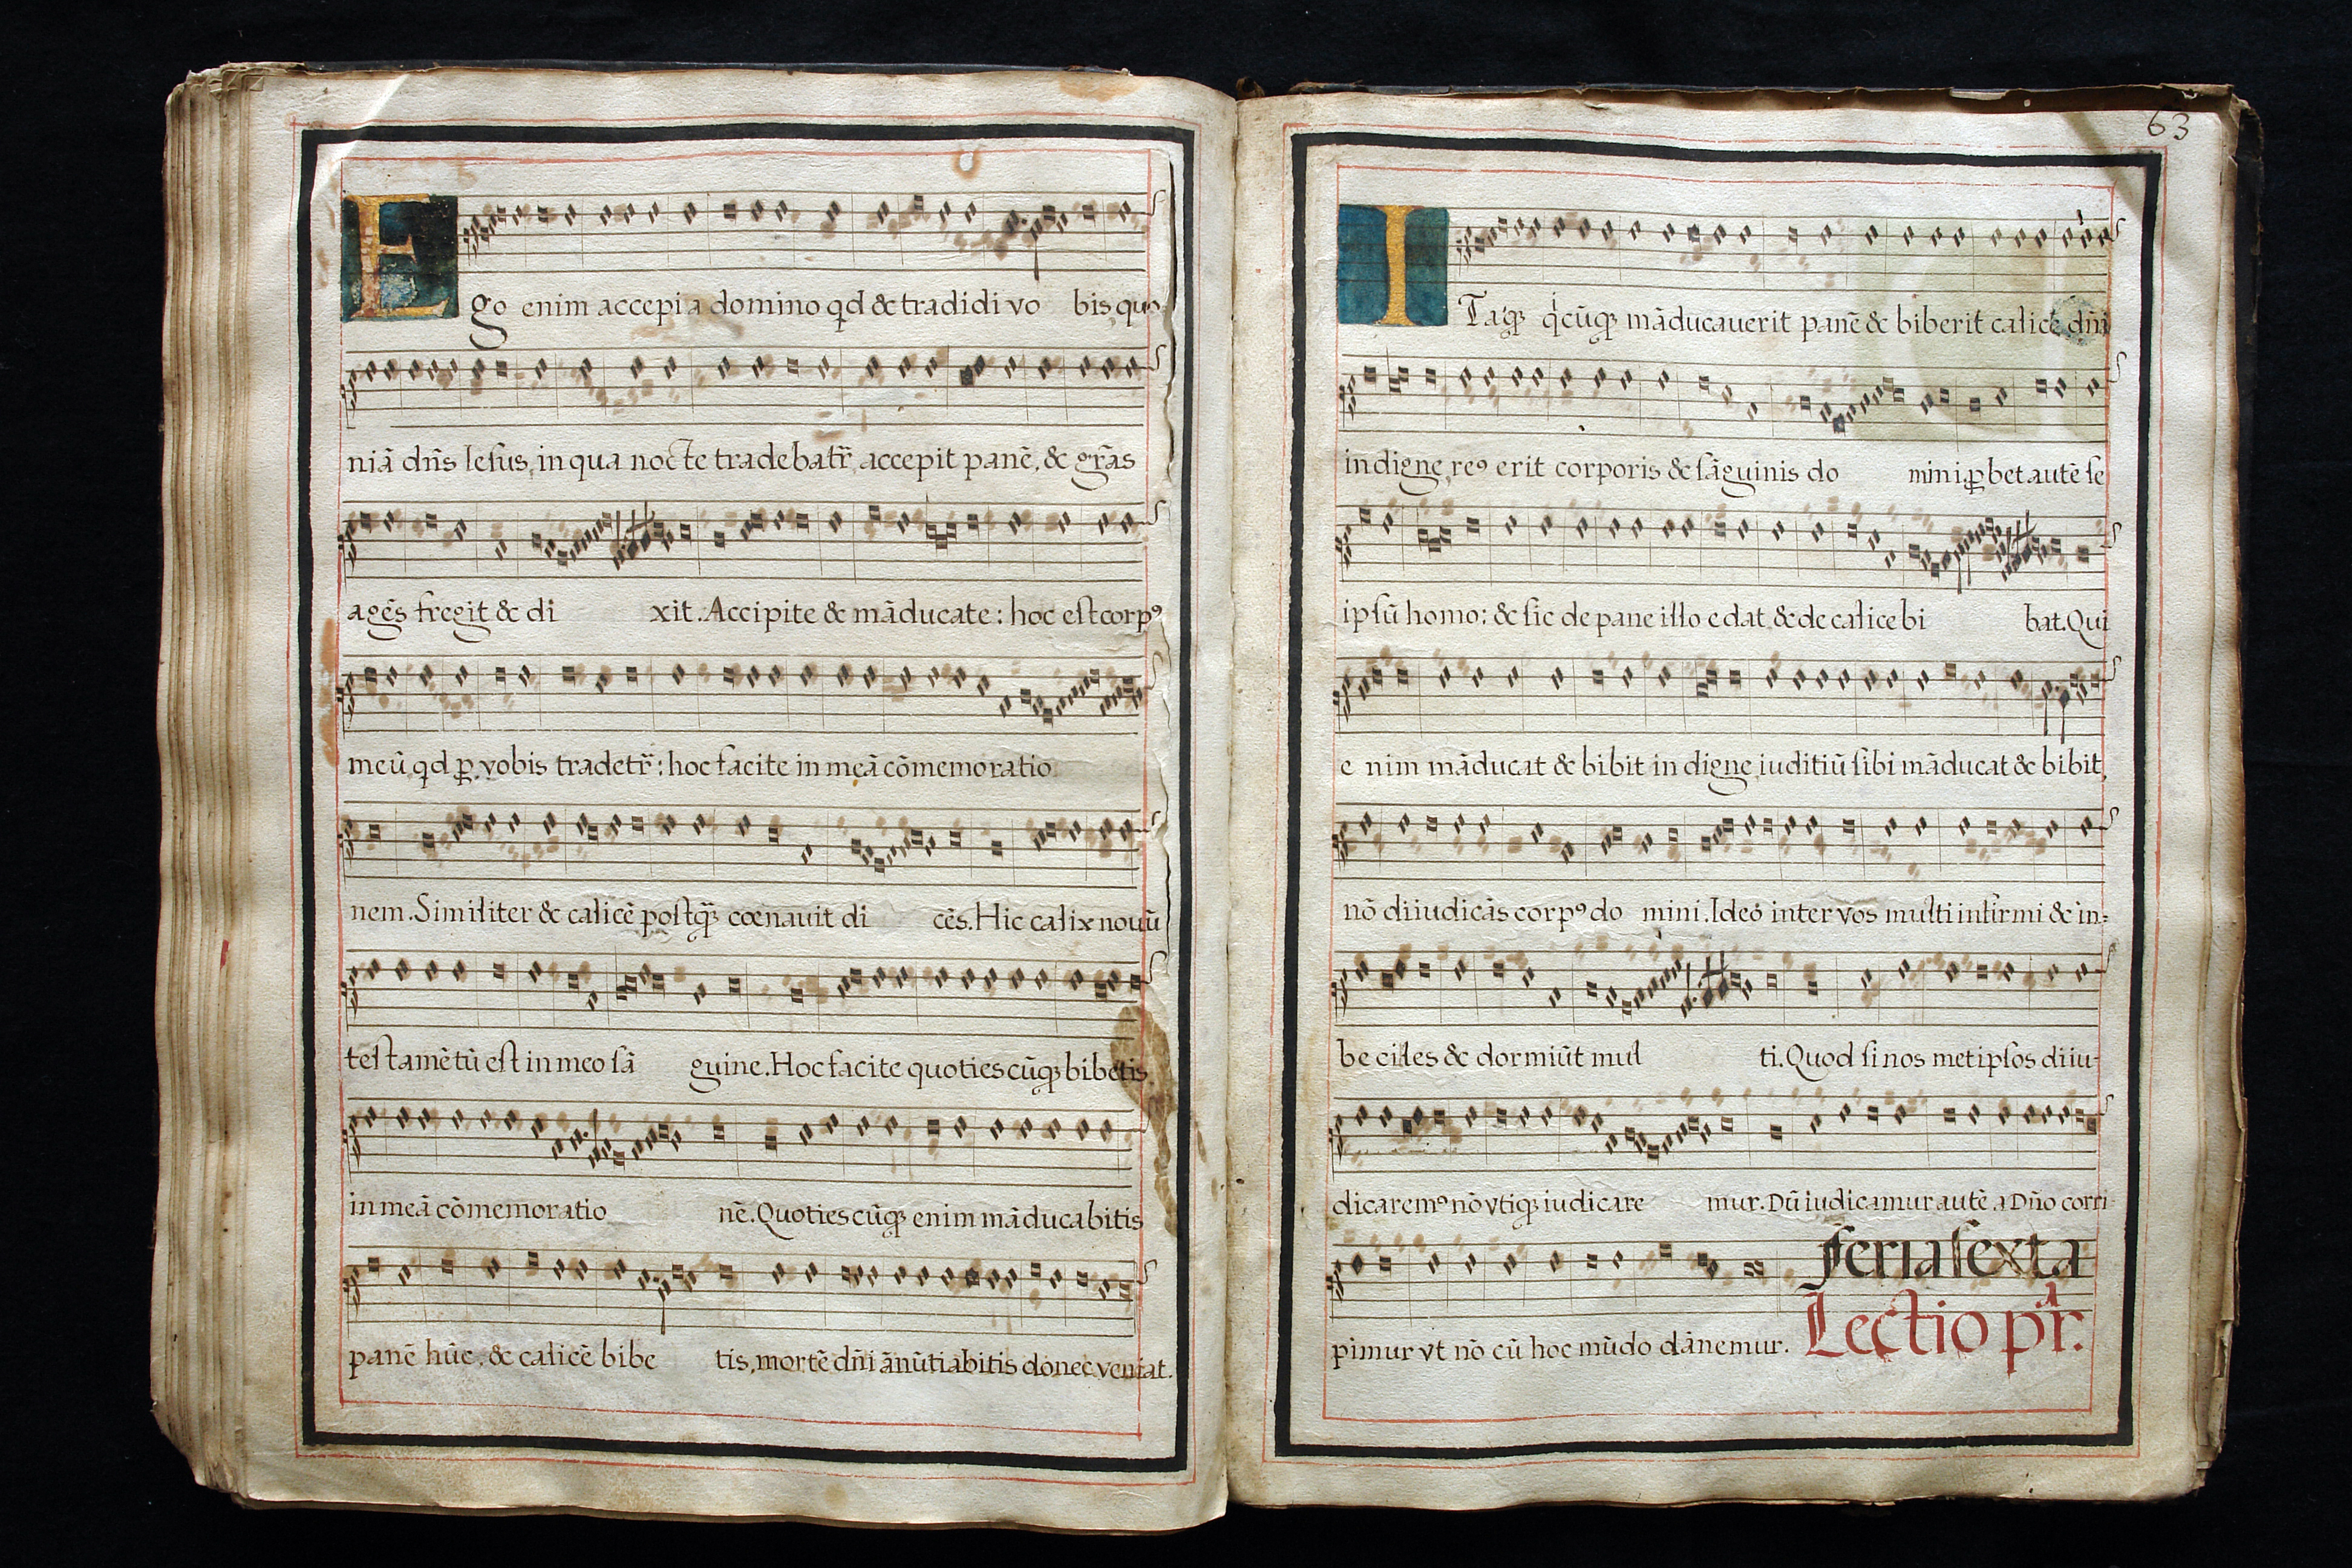 Ego enim accepi a domino qd & tradidi vo bis quo-
niā dn̄s Ieſus, in qua nocte tradebatr̄, accepit panē, & gr̄as
agēs fregit & di xit. Accipite & māducate: hoc eſt corpꝰ
meū, qd ꝓ vobis tradetr̄: hoc facite in meā cōmemoratio
nem. Similiter & calicē poſtqꝫ̄ cœnauit di cēs. Hic calix nouū
teſtamētū eſt in meo ſā guine. Hoc facite quotieſcūqꝫ bibetis
in meā cōmemoratio nē. Quotieſcūqꝫ enim māducabitis
panē hūc, & calicē bibe tis, mortē dn̄i ānūtiabitis donec veniat.
63
ITaqꝫ qͥcūqꝫ māducauerit panē & biberit calicē dn̄i
indigne, reꝰ erit corporis & ſāguinis do mini. ꝓbet autē ſe
ipſū homo: & ſic de pane illo edat, & de calice bi bat. Qui
enim māducat & bibit indigne, iuditiū ſibi māducat & bibit,
nō diiudicās corpꝰ do mini. Ideo inter vos multi infirmi & in-
becilles & dormiūt mul ti. Quod ſi nos metipſos diiu-
dicaremꝰ nō vtiqꝫ iudicare mur. Dū iudicamur autē a Dn̄o corri-
pimur vt nō cū hoc mūdo dānemur.
feria ſexta
Lectio pͥr.